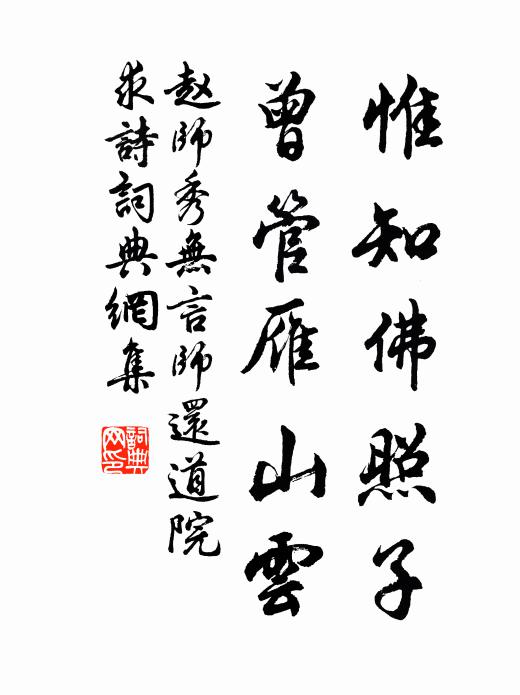 惟知佛照子
曾管雁山雲
赵師秀無言師還道院
求詩詞典網集
詞典
网印